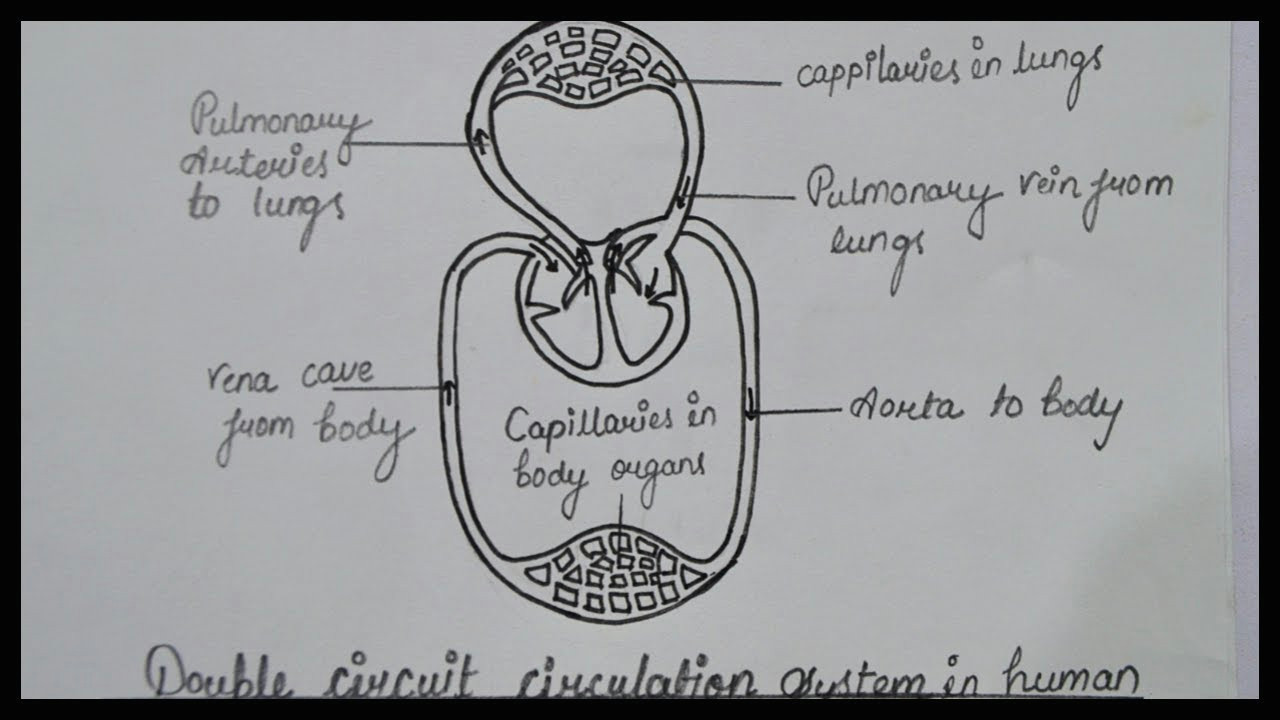 cappilaries in lungs
Pulmonary
Arteries
to lungs
Pulmonary vein from
lungs
vena cave
from body
Capillaries in
body organs
Aorta to body
Double circuit circulation system in human